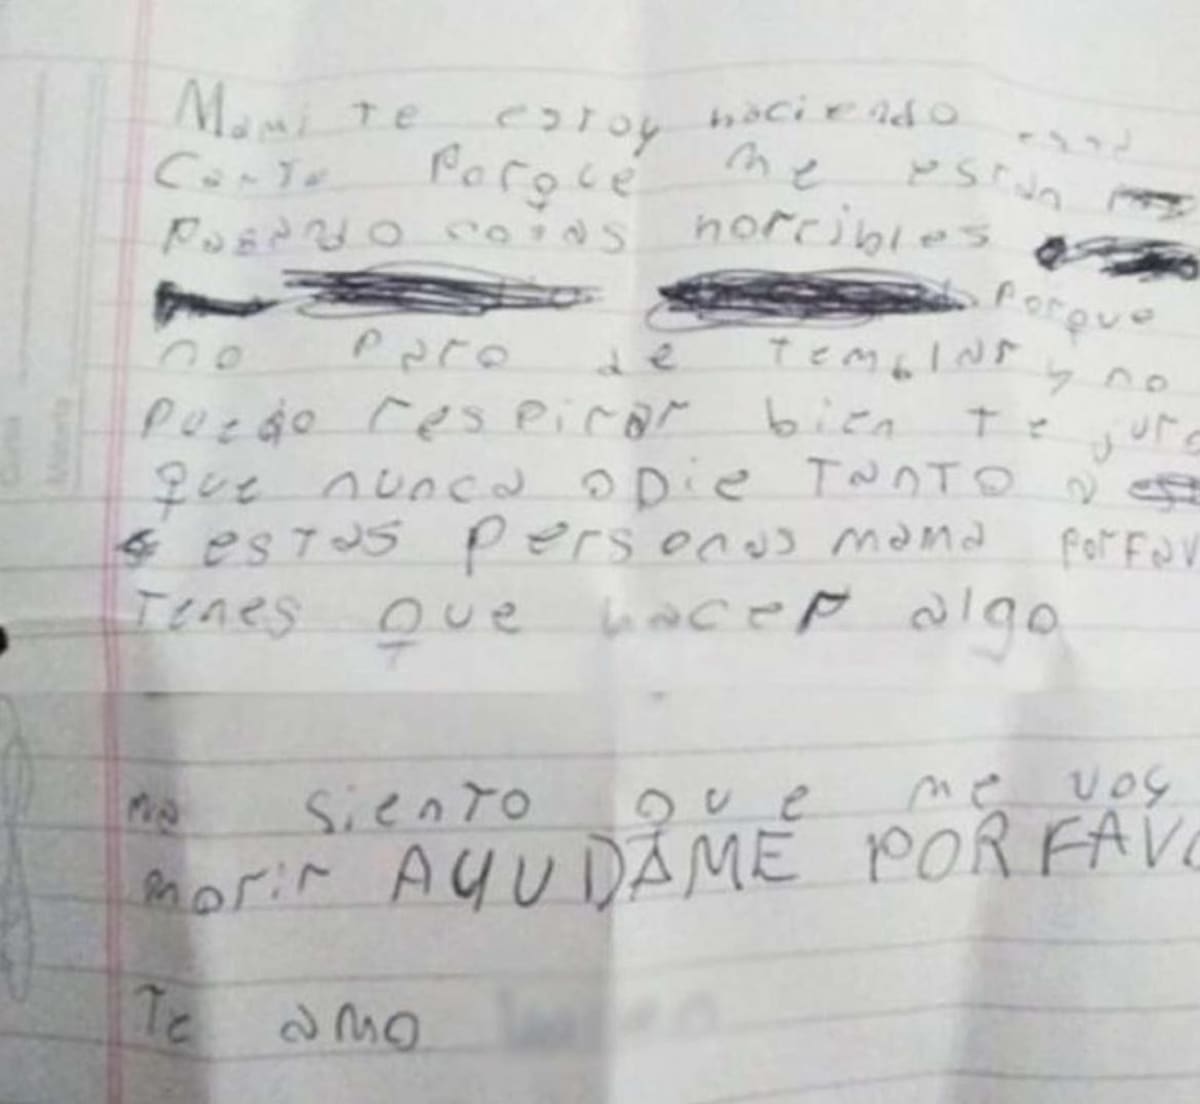 Mami te estoy haciendo esta
Carta Porque me están
Pasando cosas horribles
Porque
no Paro de temblar y no
Puedo respirar bien te juro
que nunca odie TANTO a
estas Personas mama PorFav
Tenes que hacer algo
siento que me voy
morir AYUDAME POR FAVO
Te amo